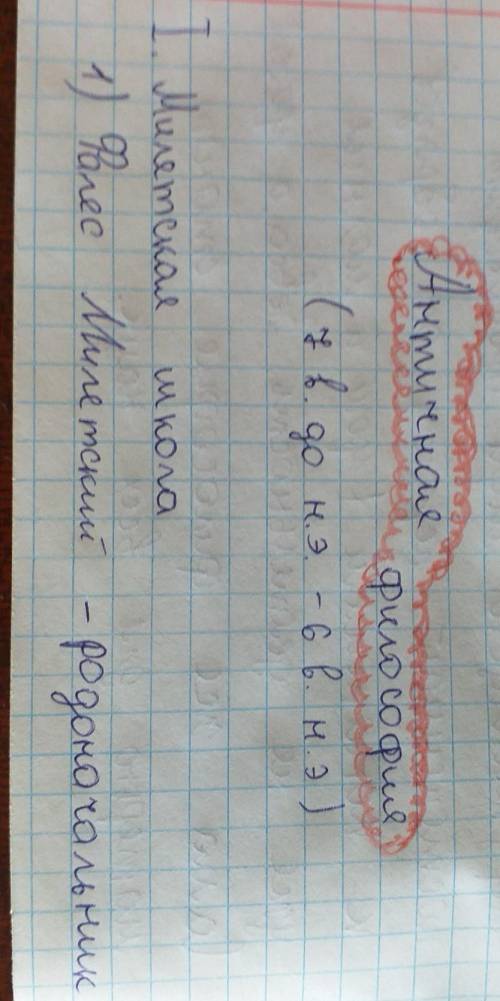 Античная философия
(7 в. до н.э. - 6 в. н.э)
I. Милетская школа
1) Фалес Милетский - родоначальник